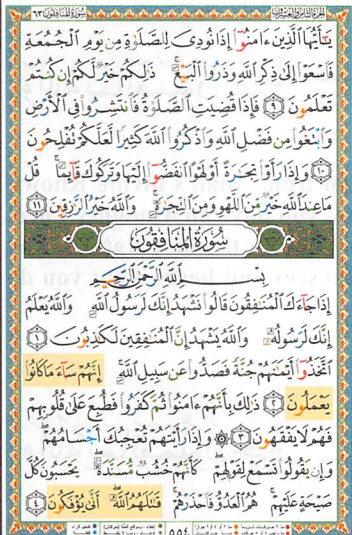 الجزء الثامن والعشرون سورة المنافقون ٦٣
يَٰٓأَيُّهَا ٱلَّذِينَ ءَامَنُوٓا۟ إِذَا نُودِىَ لِلصَّلَوٰةِ مِن يَوْمِ ٱلْجُمُعَةِ
فَٱسْعَوْا۟ إِلَىٰ ذِكْرِ ٱللَّهِ وَذَرُوا۟ ٱلْبَيْعَ ۚ ذَٰلِكُمْ خَيْرٌ لَّكُمْ إِن كُنتُمْ
تَعْلَمُونَ ٩ فَإِذَا قُضِيَتِ ٱلصَّلَوٰةُ فَٱنتَشِرُوا۟ فِى ٱلْأَرْضِ
وَٱبْتَغُوا۟ مِن فَضْلِ ٱللَّهِ وَٱذْكُرُوا۟ ٱللَّهَ كَثِيرًا لَّعَلَّكُمْ تُفْلِحُونَ
١٠ وَإِذَا رَأَوْا۟ تِجَٰرَةً أَوْ لَهْوًا ٱنفَضُّوٓا۟ إِلَيْهَا وَتَرَكُوكَ قَآئِمًا ۚ قُلْ
مَا عِندَ ٱللَّهِ خَيْرٌ مِّنَ ٱللَّهْوِ وَمِنَ ٱلتِّجَٰرَةِ ۚ وَٱللَّهُ خَيْرُ ٱلرَّٰزِقِينَ ١١
سُورَةُ المُنَافِقُونَ
بِسْمِ ٱللَّهِ ٱلرَّحْمَٰنِ ٱلرَّحِيمِ
إِذَا جَآءَكَ ٱلْمُنَٰفِقُونَ قَالُوا۟ نَشْهَدُ إِنَّكَ لَرَسُولُ ٱللَّهِ ۗ وَٱللَّهُ يَعْلَمُ
إِنَّكَ لَرَسُولُهُۥ وَٱللَّهُ يَشْهَدُ إِنَّ ٱلْمُنَٰفِقِينَ لَكَٰذِبُونَ ١
ٱتَّخَذُوٓا۟ أَيْمَٰنَهُمْ جُنَّةً فَصَدُّوا۟ عَن سَبِيلِ ٱللَّهِ ۚ إِنَّهُمْ سَآءَ مَا كَانُوا۟
يَعْمَلُونَ ٢ ذَٰلِكَ بِأَنَّهُمْ ءَامَنُوا۟ ثُمَّ كَفَرُوا۟ فَطُبِعَ عَلَىٰ قُلُوبِهِمْ
فَهُمْ لَا يَفْقَهُونَ ٣ ۞ وَإِذَا رَأَيْتَهُمْ تُعْجِبُكَ أَجْسَامُهُمْ ۖ
وَإِن يَقُولُوا۟ تَسْمَعْ لِقَوْلِهِمْ ۖ كَأَنَّهُمْ خُشُبٌ مُّسَنَّدَةٌ ۖ يَحْسَبُونَ كُلَّ
صَيْحَةٍ عَلَيْهِمْ ۚ هُمُ ٱلْعَدُوُّ فَٱحْذَرْهُمْ ۚ قَٰتَلَهُمُ ٱللَّهُ ۖ أَنَّىٰ يُؤْفَكُونَ ٤
٥٥٤